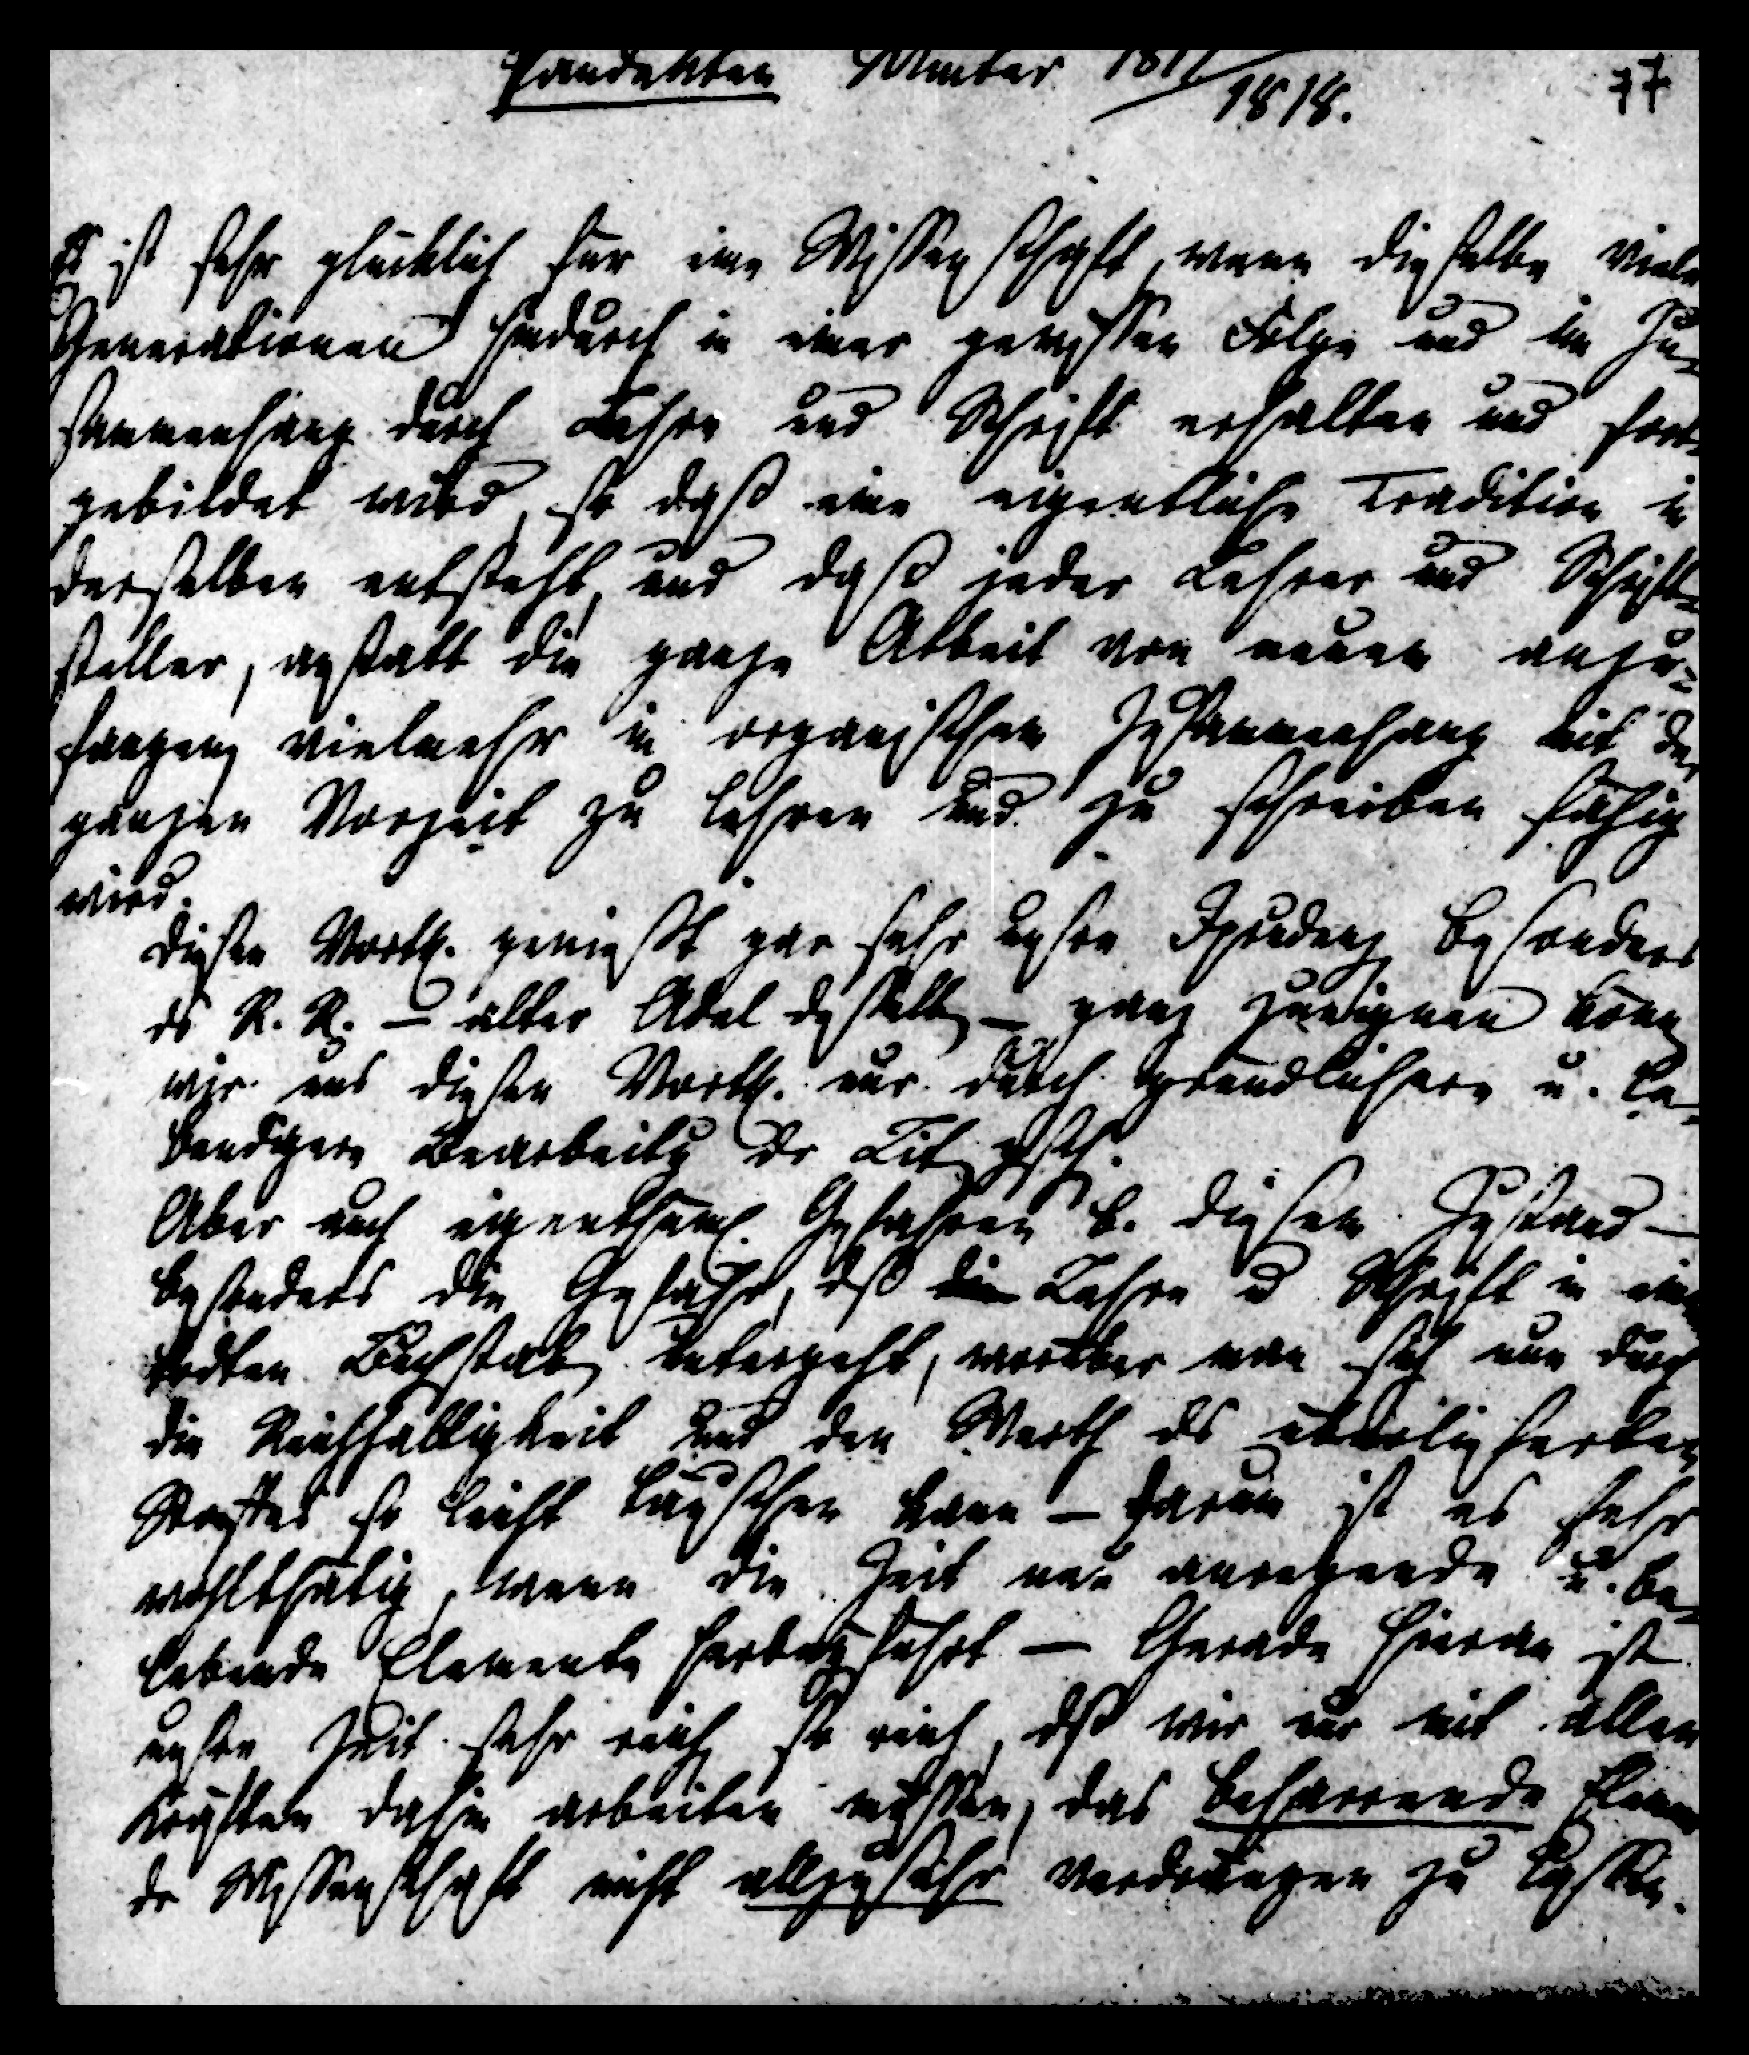 Pandekten Winter 1817/1818. 77
Es ist sehr glücklich für eine Wissenschaft, wenn dieselbe viele
Generationen hindurch in einer gewissen Folge und im Zu-
sammenhang durch Lehre und Schrift erhalten und fort-
gebildet wird, so daß eine eigentliche Tradition in
derselben entsteht, und daß jeder Lehrer und Schrift-
steller, anstatt die ganze Arbeit von neuem anzu-
fangen, vielmehr in organischem Zusammenhang mit der
ganzen Vorzeit zu lehren und zu schreiben fähig
wird.
Diesen Vorth. genießt gar sehr unsre Jprudenz besonders
ds R. R. – alter Adel desselb – ganz zueignen könn
wir uns diesen Vorth. nur durch gründlichere u. le-
bendigere Bearbeitg dr Lit. gesch.
Aber auch eigenthüml. Gefahren b. diesem Zustand –
besonders die Gefahr, dß die Lehre u Schrift in ein
todten Buchstab untergeht, worüber man sich nun durch
die Reichhaltigkeit und den Werth ds überlieferten
Stoffes so leicht täuschen kann – darum ist es sehr
wohlthätig, wenn die Zeit neu anregende u. be-
lebende Elemente herbeyführt – Gerade hieran ist
unsre Zeit sehr reich, so reich, dß wir nur mit allen
Kräften dahin arbeiten müssen, das beharrende Elem
dr Wissenschaft nicht allzusehr verdrängen zu lassen.